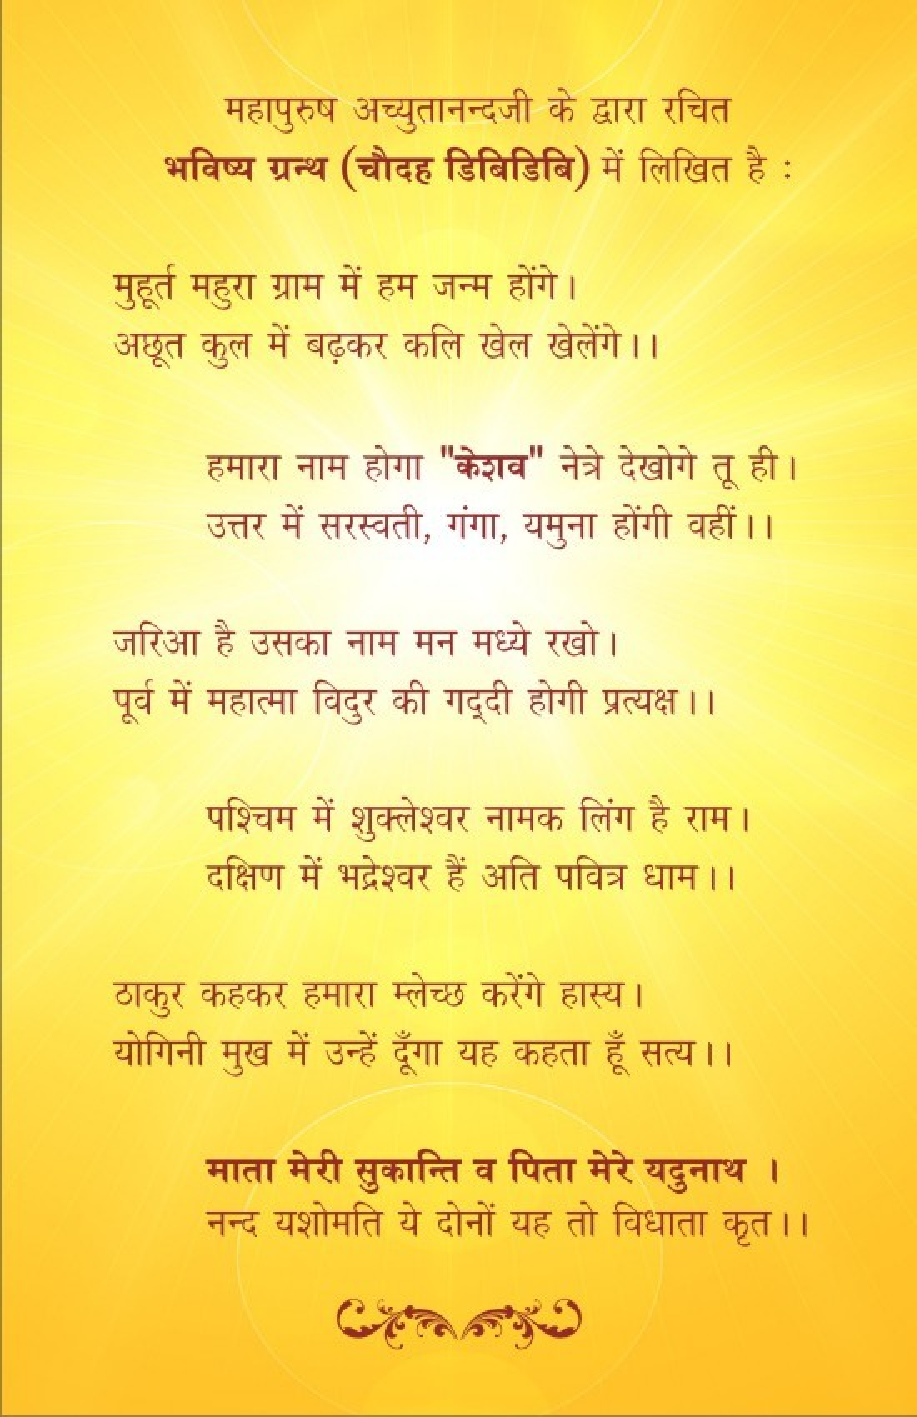 महापुरुष अच्युतानन्दजी के द्वारा रचित
भविष्य ग्रन्थ (चौदह डिबिडिबि) में लिखित है :
मुहूर्त महुरा ग्राम में हम जन्म होंगे।
अछूत कुल में बढ़कर कलि खेल खेलेंगे।।
हमारा नाम होगा "केशव" नेत्रे देखोगे तू ही।
उत्तर में सरस्वती, गंगा, यमुना होंगी वहीं।।
जरिआ है उसका नाम मन मध्ये रखो।
पूर्व में महात्मा विदुर की गद्दी होगी प्रत्यक्ष।।
पश्चिम में शुक्लेश्वर नामक लिंग है राम।
दक्षिण में भद्रेश्वर हैं अति पवित्र धाम।।
ठाकुर कहकर हमारा म्लेच्छ करेंगे हास्य।
योगिनी मुख में उन्हें दूँगा यह कहता हूँ सत्य।।
माता मेरी सुकान्ति व पिता मेरे यदुनाथ ।
नन्द यशोमति ये दोनों यह तो विधाता कृत।।